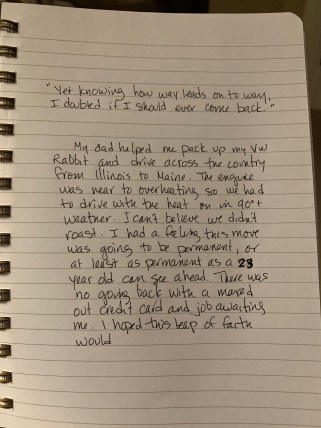 "Yet knowing how way leads on to way,
I doubted if I should ever come back."
My dad helped me pack up my VW
Rabbit and drive across the country
from Illinois to Maine. The engine
was near to overheating so we had
to drive with the heat on in 90°+
weather. I can't believe we didn't
roast. I had a feeling this move
was going to be permanent, or
at least as permanent as a 23
year old can see ahead. There was
no going back with a maxed
out credit card and job awaiting
me. I hoped this leap of faith
would